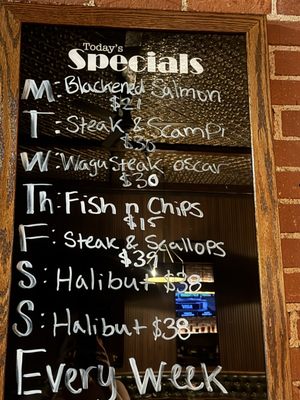 Today's
Specials
M: Blackened Salmon
$21
T: Steak & Scampi
$30
W: Wagu Steak oscar
$30
Th: Fish n Chips
$15
F: Steak & Scallops
$39
S: Halibut $38
S: Halibut $38
Every Week